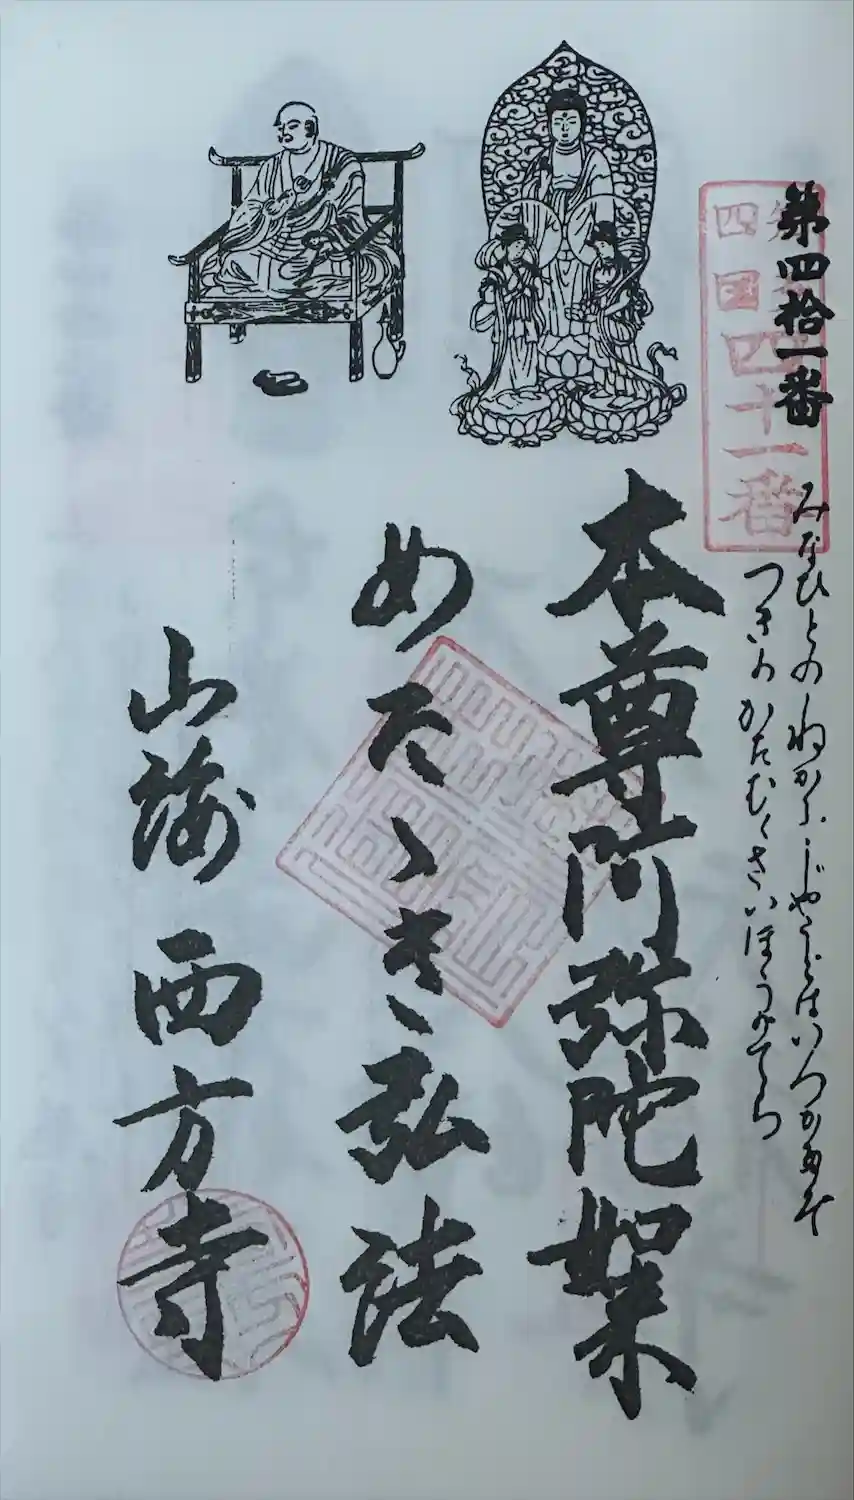 第四拾一番
四国
四十一番
みなひとの ねかふじやうどはいつかたぞ
つきのかたむくさいほうがてら
本尊阿弥陀如来
めたゝき弘法
山海 西方寺